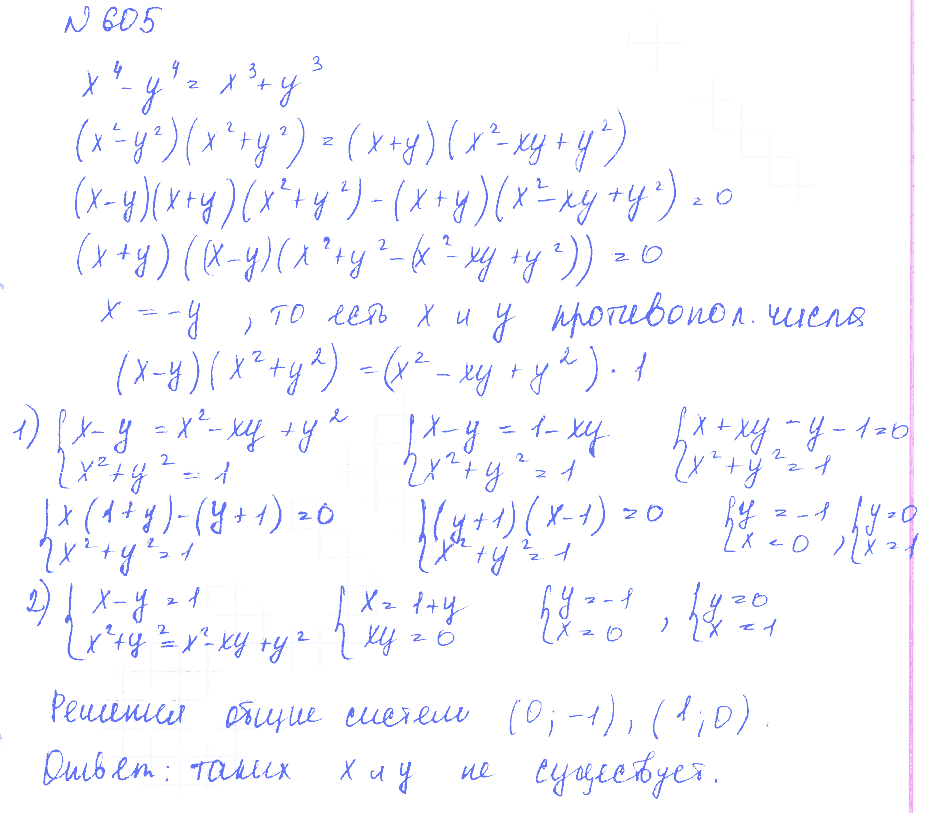 N 605
x⁴ - y⁴ = x³ + y³
(x² - y²)(x² + y²) = (x+y)(x² - xy + y²)
(x-y)(x+y)(x² + y²) - (x+y)(x² - xy + y²) = 0
(x+y)((x-y)(x² + y² - (x² - xy + y²)) = 0
x = -y , то есть x и y противопол. числа
(x-y)(x² + y²) = (x² - xy + y²) · 1
1) { x - y = x² - xy + y² { x - y = 1 - xy { x + xy - y - 1 = 0
x² + y² = 1 x² + y² = 1 x² + y² = 1
{ x(1+y) - (y+1) = 0 { (y+1)(x-1) = 0 { y = -1 { y = 0
x² + y² = 1 x² + y² = 1 x = 0 , x = 1
2) { x - y = 1 { x = 1 + y { y = -1 { y = 0
x² + y² = x² - xy + y² xy = 0 x = 0 , x = 1
Решения общие систем (0; -1), (1; 0).
Ответ: таких x и y не существует.